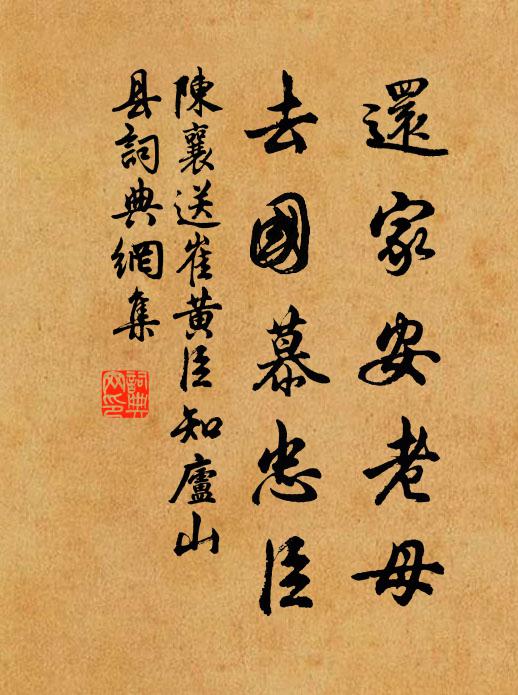 還家安老母
去國慕忠臣
陳襄送崔黃臣知廬山
县詞典網集
詞典
网印